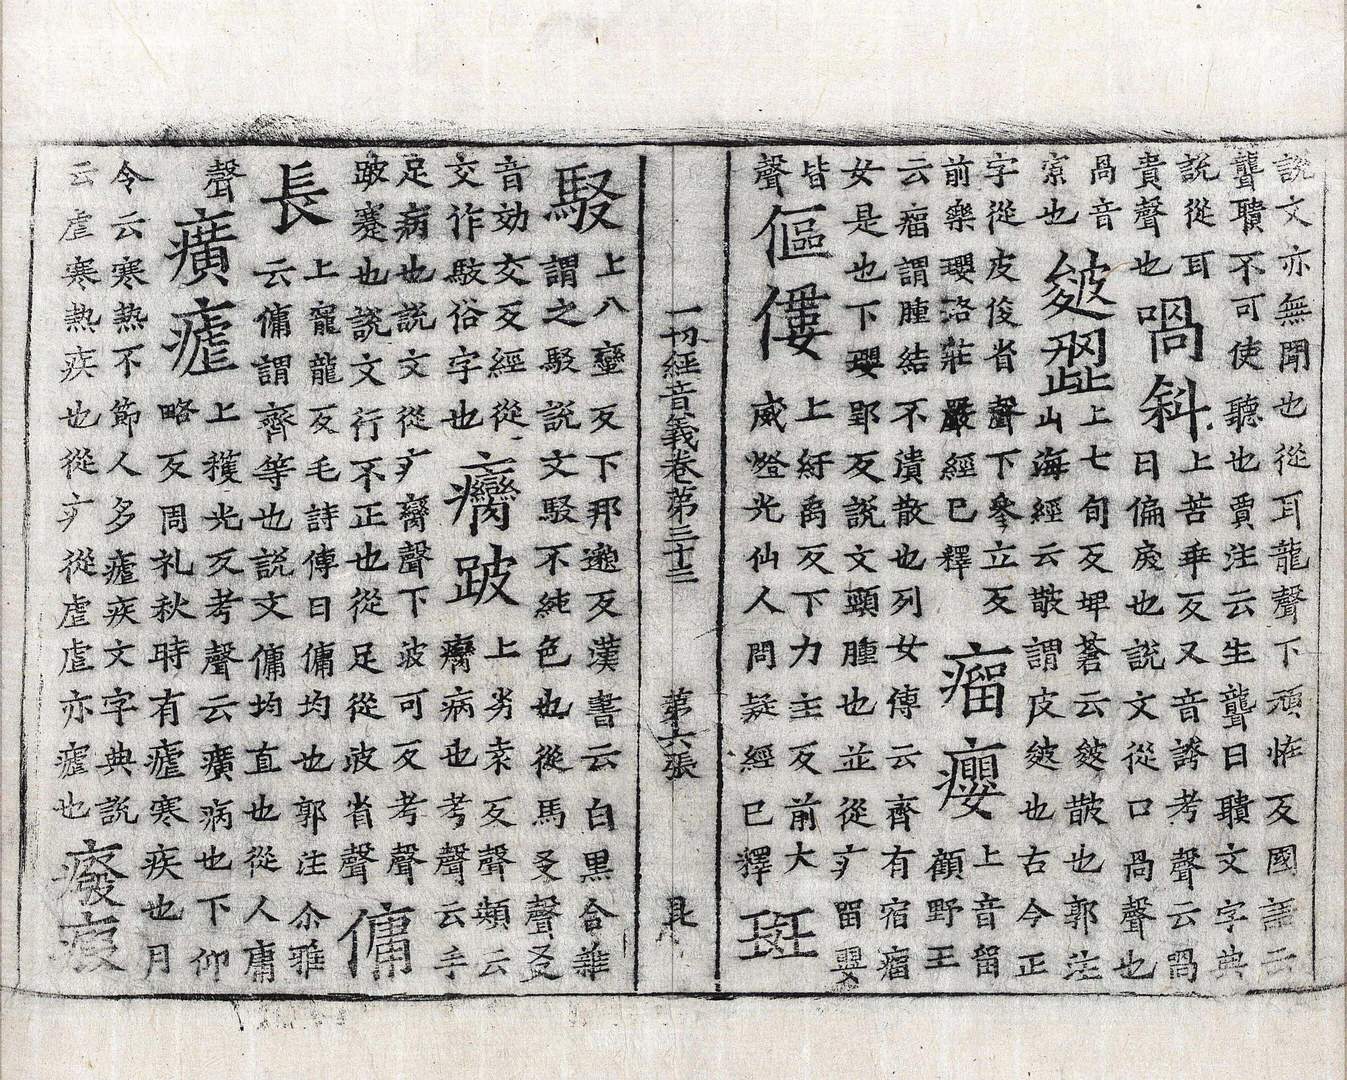 說文亦無聞也從耳龍聲下頑恠反國語云
聾聵不可使聽也賈注云生聾曰聵文字典
說從耳貴聲也
喎斜
上苦乖反又音誇考聲云喎
曰偏戾也說文從口咼聲也
咼音
皴𤿎
上七旬反埤蒼云皴皵也郭注
山海經云皵謂皮皴也古今正
字從皮俊省聲下參立反
前樂瓔珞莊嚴經已釋
瘤癭
上音留
顧野王
云瘤謂腫結不潰散也列女傳云齊有宿瘤
女是也下瓔郢反說文頸腫也並從疒留嬰
皆聲
傴僂
上紆禹反下力主反前大
威燈光仙人問疑經已釋
斑
一切經音義卷第三十三 第六張
駁
上八蠻反下邦邈反漢書云白黑合雜
謂之駁說文駁不純色也從馬爻聲爻
音効交反經從
交作駮俗字也
癵跛
上劣袁反聲類云
癵病也考聲云手
足病也說文從疒臠聲下波可反考聲
跛蹇也說文行不正也從足從波省聲
傭長
上寵龍反毛詩傳曰傭均也郭注尒雅
云傭謂齊等也說文傭均直也從人庸
聲
癀瘧
上穫光反考聲云癀病也下仰
略反周礼秋時有瘧寒疾也月
令云寒熱不節人多瘧疾文字典說
云虐寒熱疾也從疒從虐虐亦瘧也
癈痕